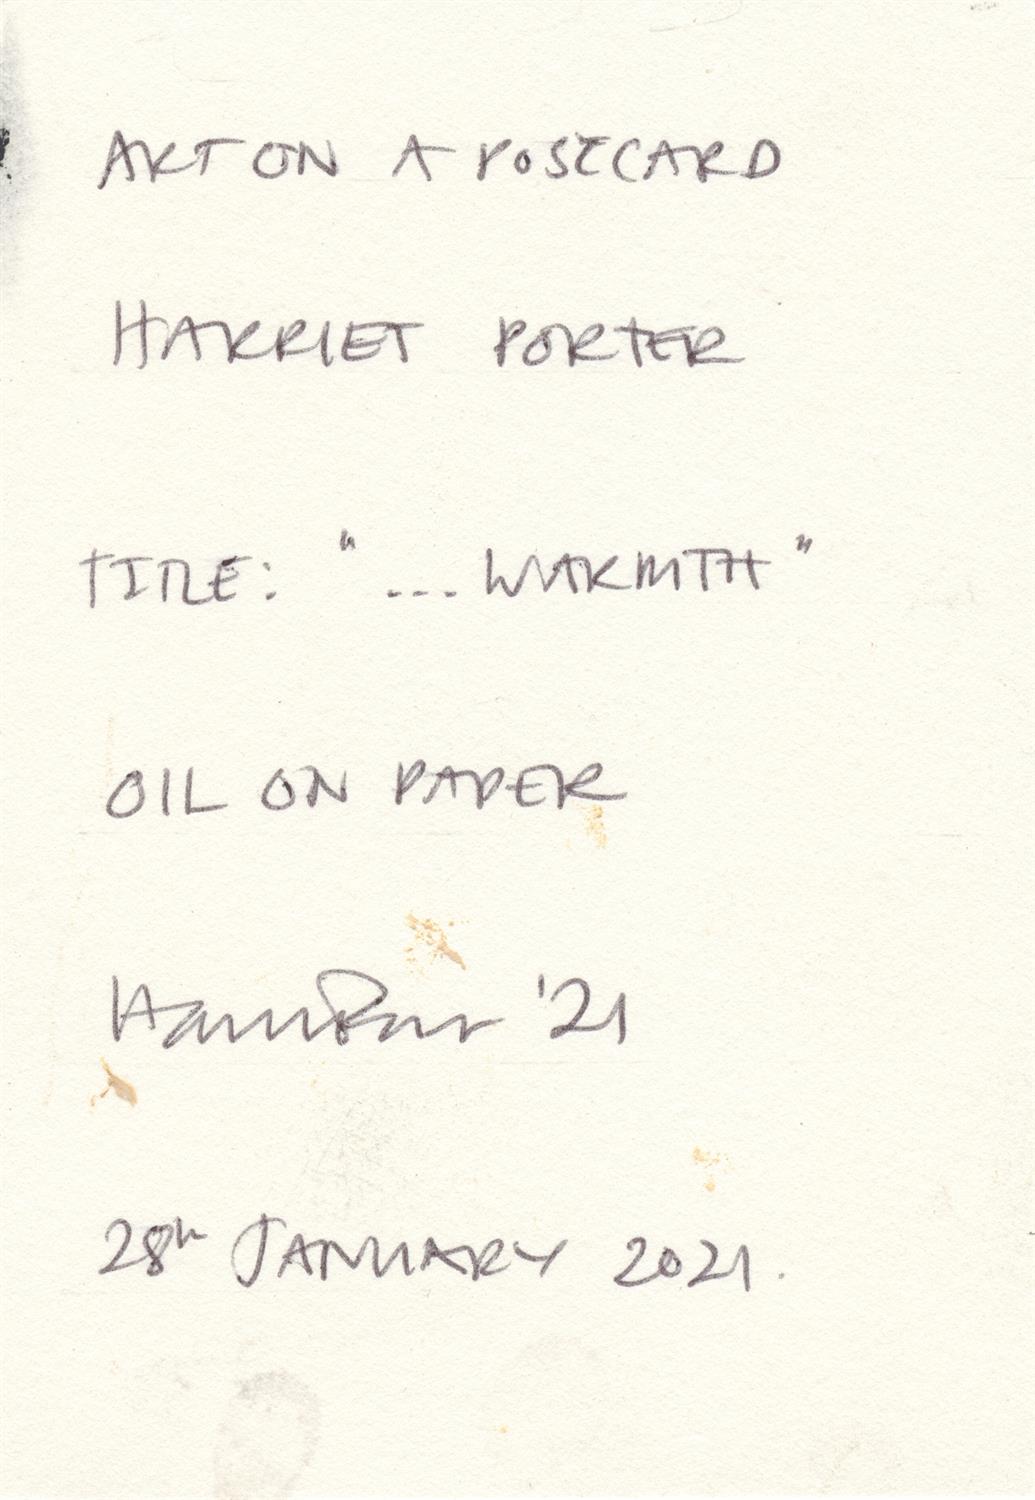 ART ON A POSTCARD
HARRIET PORTER
TITLE: "...WARMTH"
OIL ON PAPER
Harriet Porter '21
28th JANUARY 2021.